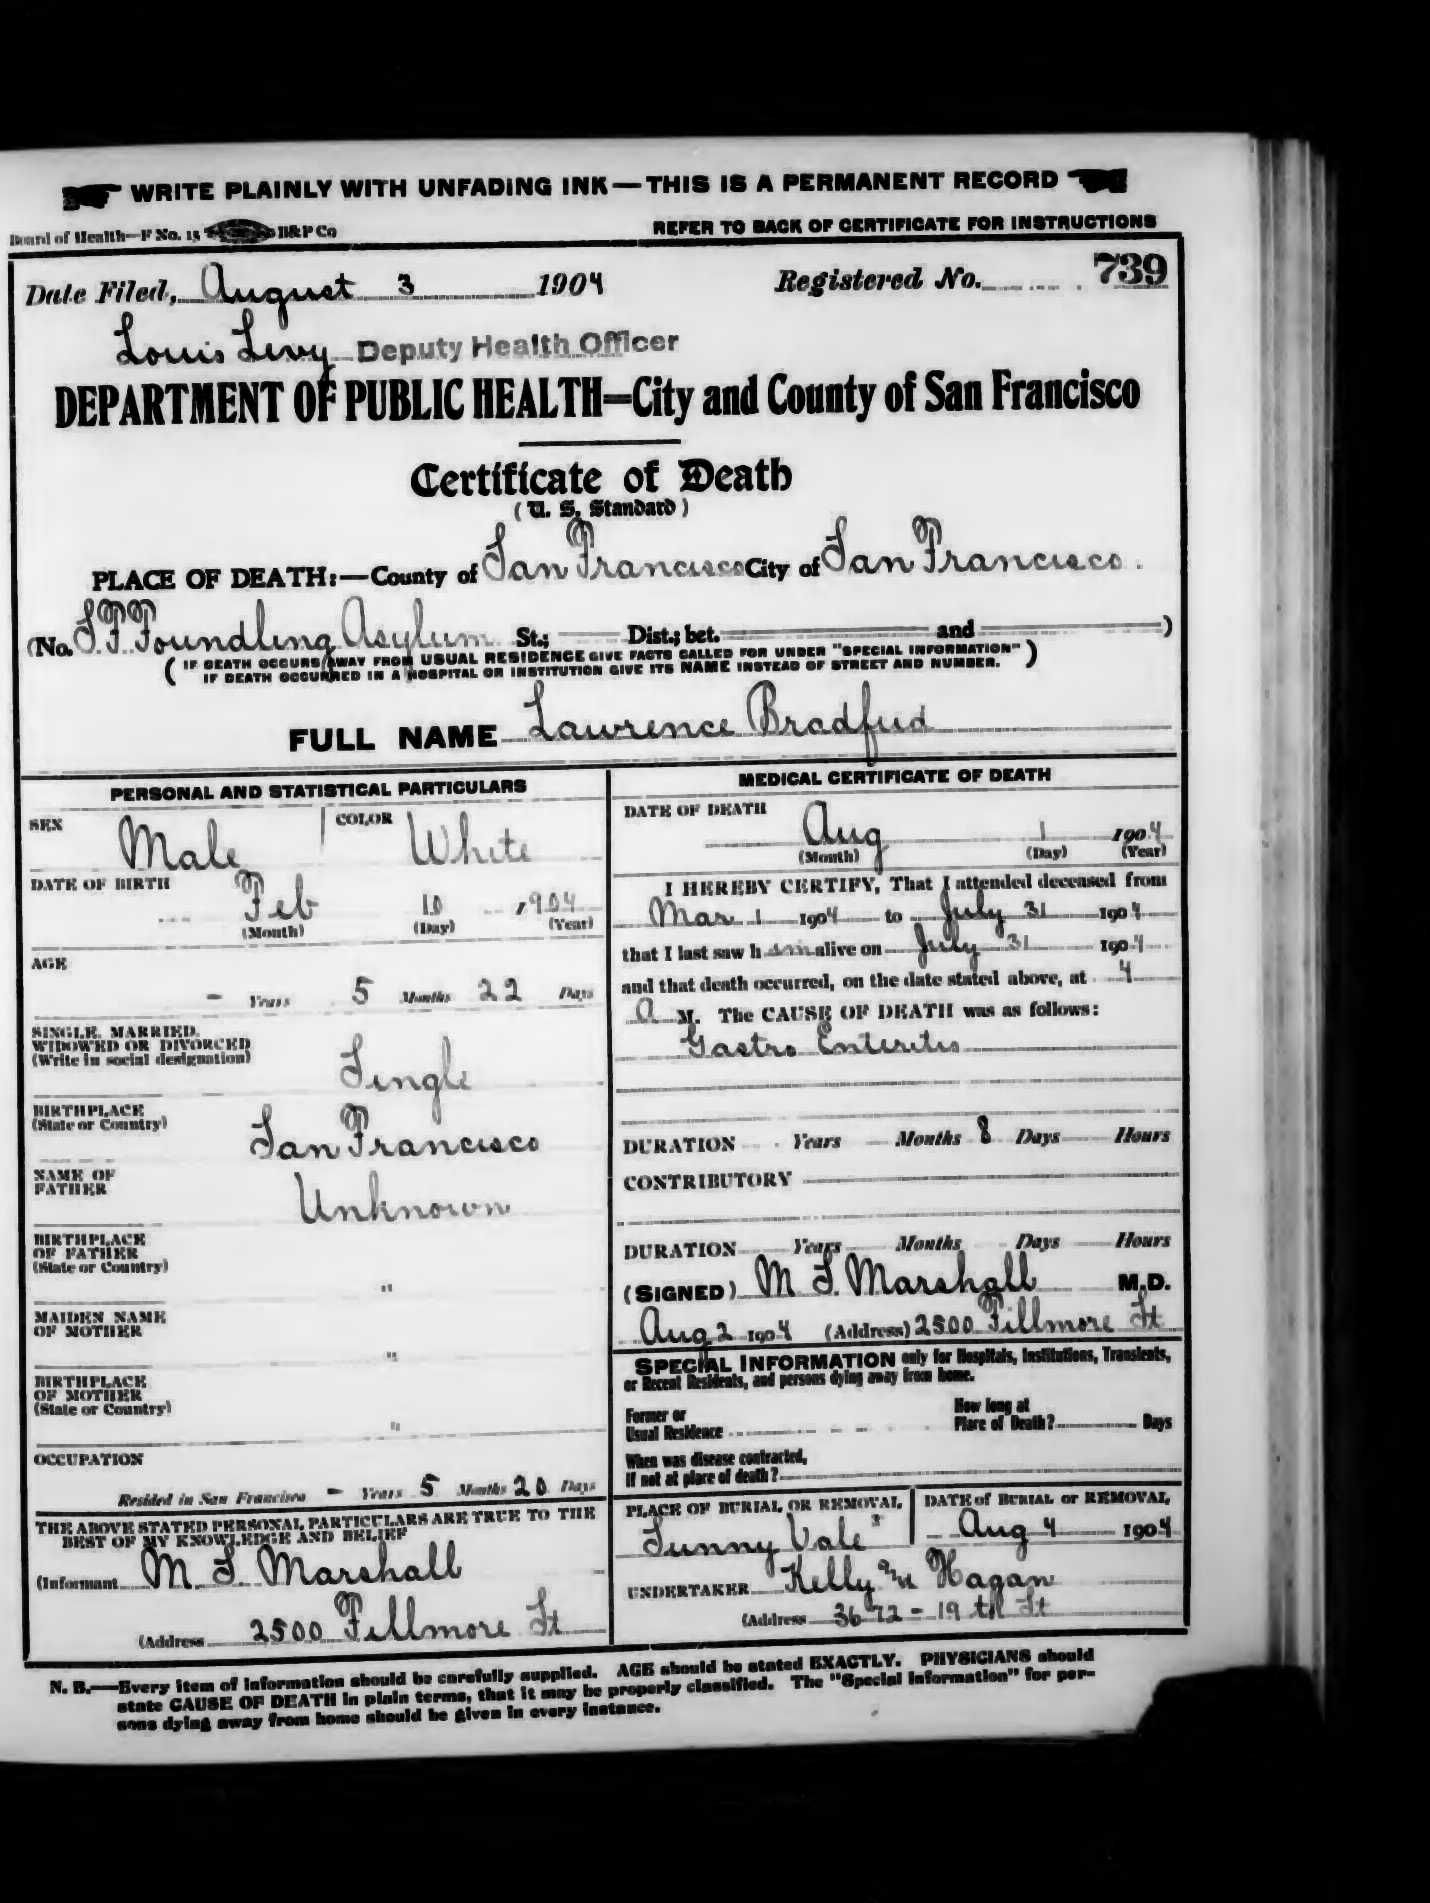 WRITE PLAINLY WITH UNFADING INK — THIS IS A PERMANENT RECORD
Board of Health—F No. 15 H&P Co
REFER TO BACK OF CERTIFICATE FOR INSTRUCTIONS
Date Filed, August 3 1904 Registered No. 739
Louis Levy Deputy Health Officer
DEPARTMENT OF PUBLIC HEALTH=City and County of San Francisco
Certificate of Death
(U. S. Standard)
PLACE OF DEATH:—County of San Francisco City of San Francisco.
(No. S.F. Foundling Asylum St.; Dist.; bet. and )
(IF DEATH OCCURS AWAY FROM USUAL RESIDENCE GIVE FACTS CALLED FOR UNDER "SPECIAL INFORMATION"
IF DEATH OCCURRED IN A HOSPITAL OR INSTITUTION GIVE ITS NAME INSTEAD OF STREET AND NUMBER.)
FULL NAME Lawrence Bradfud
PERSONAL AND STATISTICAL PARTICULARS
SEX Male COLOR White
DATE OF BIRTH
Feb 10 1904
(Month) (Day) (Year)
AGE
- Years 5 Months 22 Days
SINGLE, MARRIED,
WIDOWED OR DIVORCED
(Write in social designation) Single
BIRTHPLACE
(State or Country) San Francisco
NAME OF
FATHER Unknown
BIRTHPLACE
OF FATHER
(State or Country) "
MAIDEN NAME
OF MOTHER "
BIRTHPLACE
OF MOTHER
(State or Country) "
OCCUPATION
Resided in San Francisco - Years 5 Months 20 Days
THE ABOVE STATED PERSONAL PARTICULARS ARE TRUE TO THE
BEST OF MY KNOWLEDGE AND BELIEF
(Informant M. S. Marshall
(Address 2500 Fillmore St
MEDICAL CERTIFICATE OF DEATH
DATE OF DEATH
Aug 1 1904
(Month) (Day) (Year)
I HEREBY CERTIFY, That I attended deceased from
Mar 1 1904 to July 31 1904
that I last saw him alive on July 31 1904
and that death occurred, on the date stated above, at 4
A M. The CAUSE OF DEATH was as follows:
Gastro Enteritis
DURATION Years Months 8 Days Hours
CONTRIBUTORY
DURATION Years Months Days Hours
(SIGNED) M S. Marshall M.D.
Aug 2 1904 (Address) 2500 Fillmore St
SPECIAL INFORMATION only for Hospitals, Institutions, Transients,
or Recent Residents, and persons dying away from home.
Former or
Usual Residence
How long at
Place of Death? Days
When was disease contracted,
If not at place of death?
PLACE OF BURIAL OR REMOVAL
Sunny Vale
DATE of BURIAL or REMOVAL
Aug 4 1904
UNDERTAKER Kelly Hagan
(Address 3672 - 19 th St
N. B.—Every item of information should be carefully supplied. AGE should be stated EXACTLY. PHYSICIANS should
state CAUSE OF DEATH in plain terms, that it may be properly classified. The "Special Information" for per-
sons dying away from home should be given in every instance.